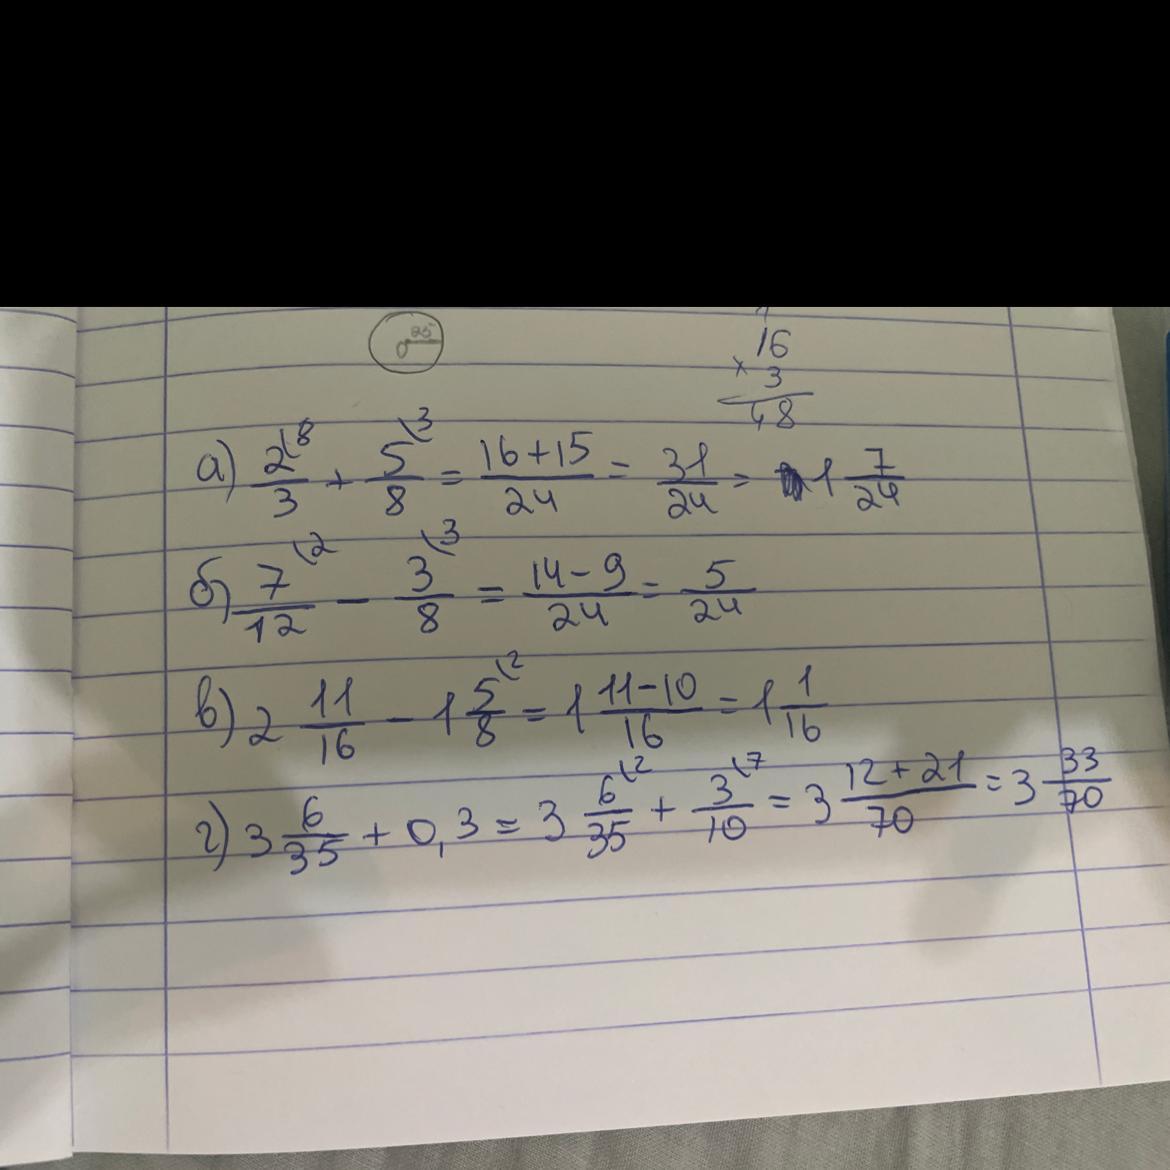 16
× 3
48
а) 2/3 (8 + 5/8 (3 = (16+15)/24 = 31/24 = 1 7/24
б) 7/12 (2 - 3/8 (3 = (14-9)/24 = 5/24
в) 2 11/16 - 1 5/8 (2 = 1 (11-10)/16 = 1 1/16
г) 3 6/35 + 0,3 = 3 6/35 (2 + 3/10 (7 = 3 (12+21)/70 = 3 33/70